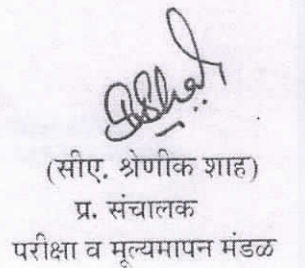 (सीए. श्रेणीक शाह)
प्र. संचालक
परीक्षा व मूल्यमापन मंडळ